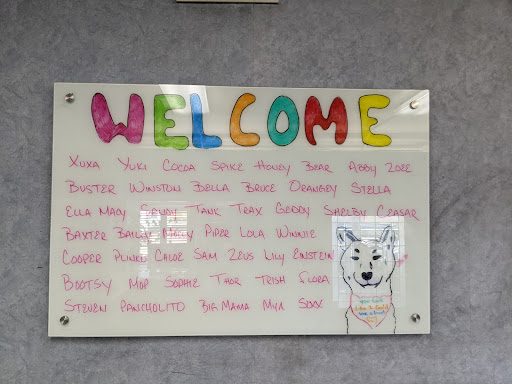 WELCOME
XUXA YUKI COCOA SPIKE HONEY BEAR ABBY ZOEE
BUSTER WINSTON BELLA BRUCE ORANGEY STELLA
ELLA MAY SANDY TANK TRAX GEDDY SHELBY CEASAR
BAXTER BAILEY MOLLY PIPER LOLA WINNIE
COOPER CHLOE SAM ZEUS LILY EINSTEIN
BOOTSY MOP SOPHIE THOR TRISH FLORA
STEVEN PANCHOLITO BIG MAMA MYA